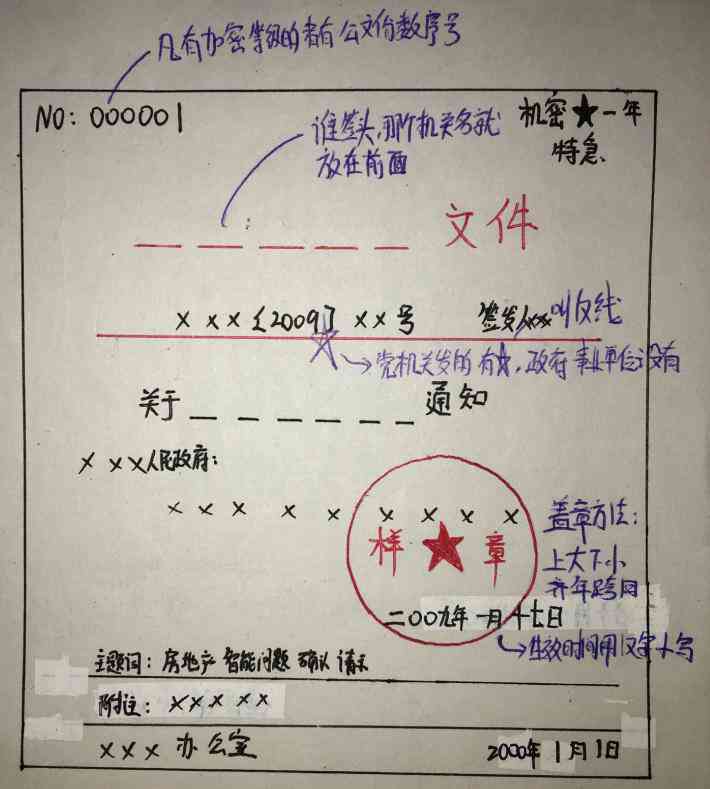 凡有加密等级的者有公文份数序号
NO: 000001
机密★一年
特急
谁牵头,那个机关名就
放在前面
_ _ _ _ _ 文件
×××〔2009〕××号
签发人×× 叫反线
☆→党机关发的有★,政府事业单位没有
关于_ _ _ _ _ _通知
×××人民政府:
× × × × × × × × ×
样★章
盖章方法:
上大下小
齐年跨月
二00九年一月十七日
→生效时间用汉字小写
主题词:房地产 智能问题 确认 请示
附注:×××××
×××办公室
2000年1月1日